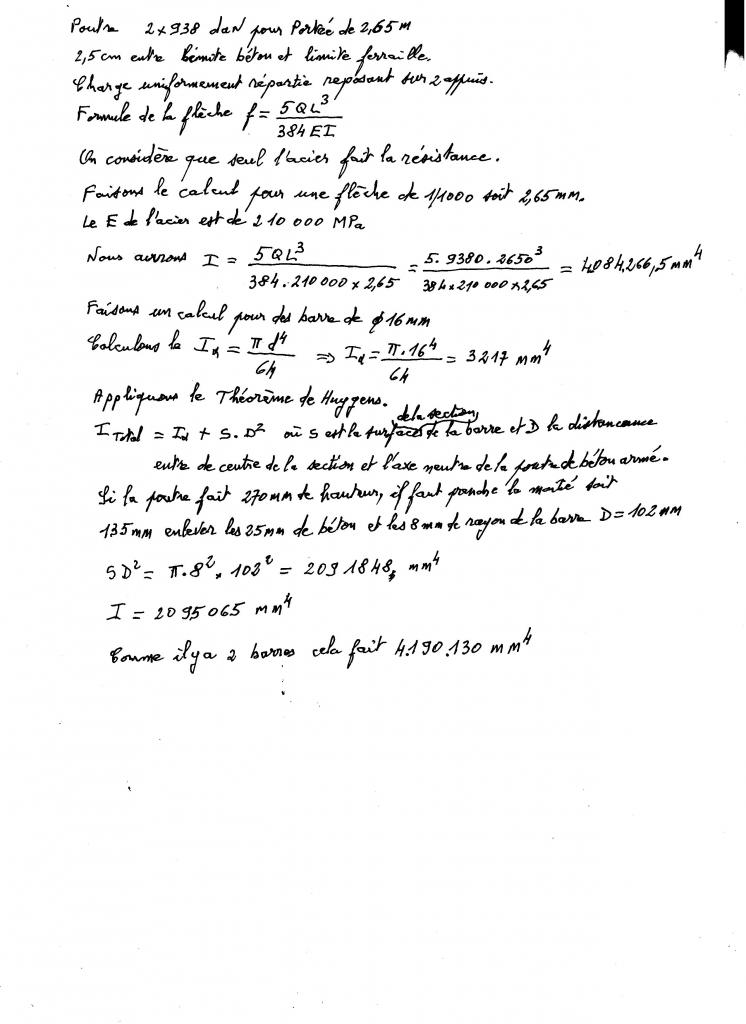 Poutre 2 x 938 daN pour Portée de 2,65 m
2,5 cm entre limite béton et limite ferraille.
Charge uniformement répartie reposant sur 2 appuis.
Formule de la flèche f = 5QL³ / 384EI
On considère que seul l'acier fait la résistance.
Faisons le calcul pour une flèche de 1/1000 soit 2,65 mm.
Le E de l'acier est de 210 000 MPa
Nous aurons I = 5QL³ / 384.210 000 x 2,65 = 5.9380.2650³ / 384 x 210 000 x 2,65 = 4.084.266,5 mm⁴
Faisons un calcul pour des barre de φ 16 mm
Calculons le Iₓ = π d⁴ / 64 => Iₓ = π.16⁴ / 64 = 3217 mm⁴
Appliquons le Théorème de Huygens.
de la section,
I Total = Iₓ + S.D² où S est la surface de la barre et D la distance
entre de centre de la section et l'axe neutre de la poutre de béton armé.
Si la poutre fait 270 mm de hauteur, il faut prendre la moitié soit
135 mm enlever les 25 mm de béton et les 8 mm de rayon de la barre D = 102 mm
SD² = π.8².102² = 2091848, mm⁴
I = 2095065 mm⁴
Comme il y a 2 barres cela fait 4.190.130 mm⁴